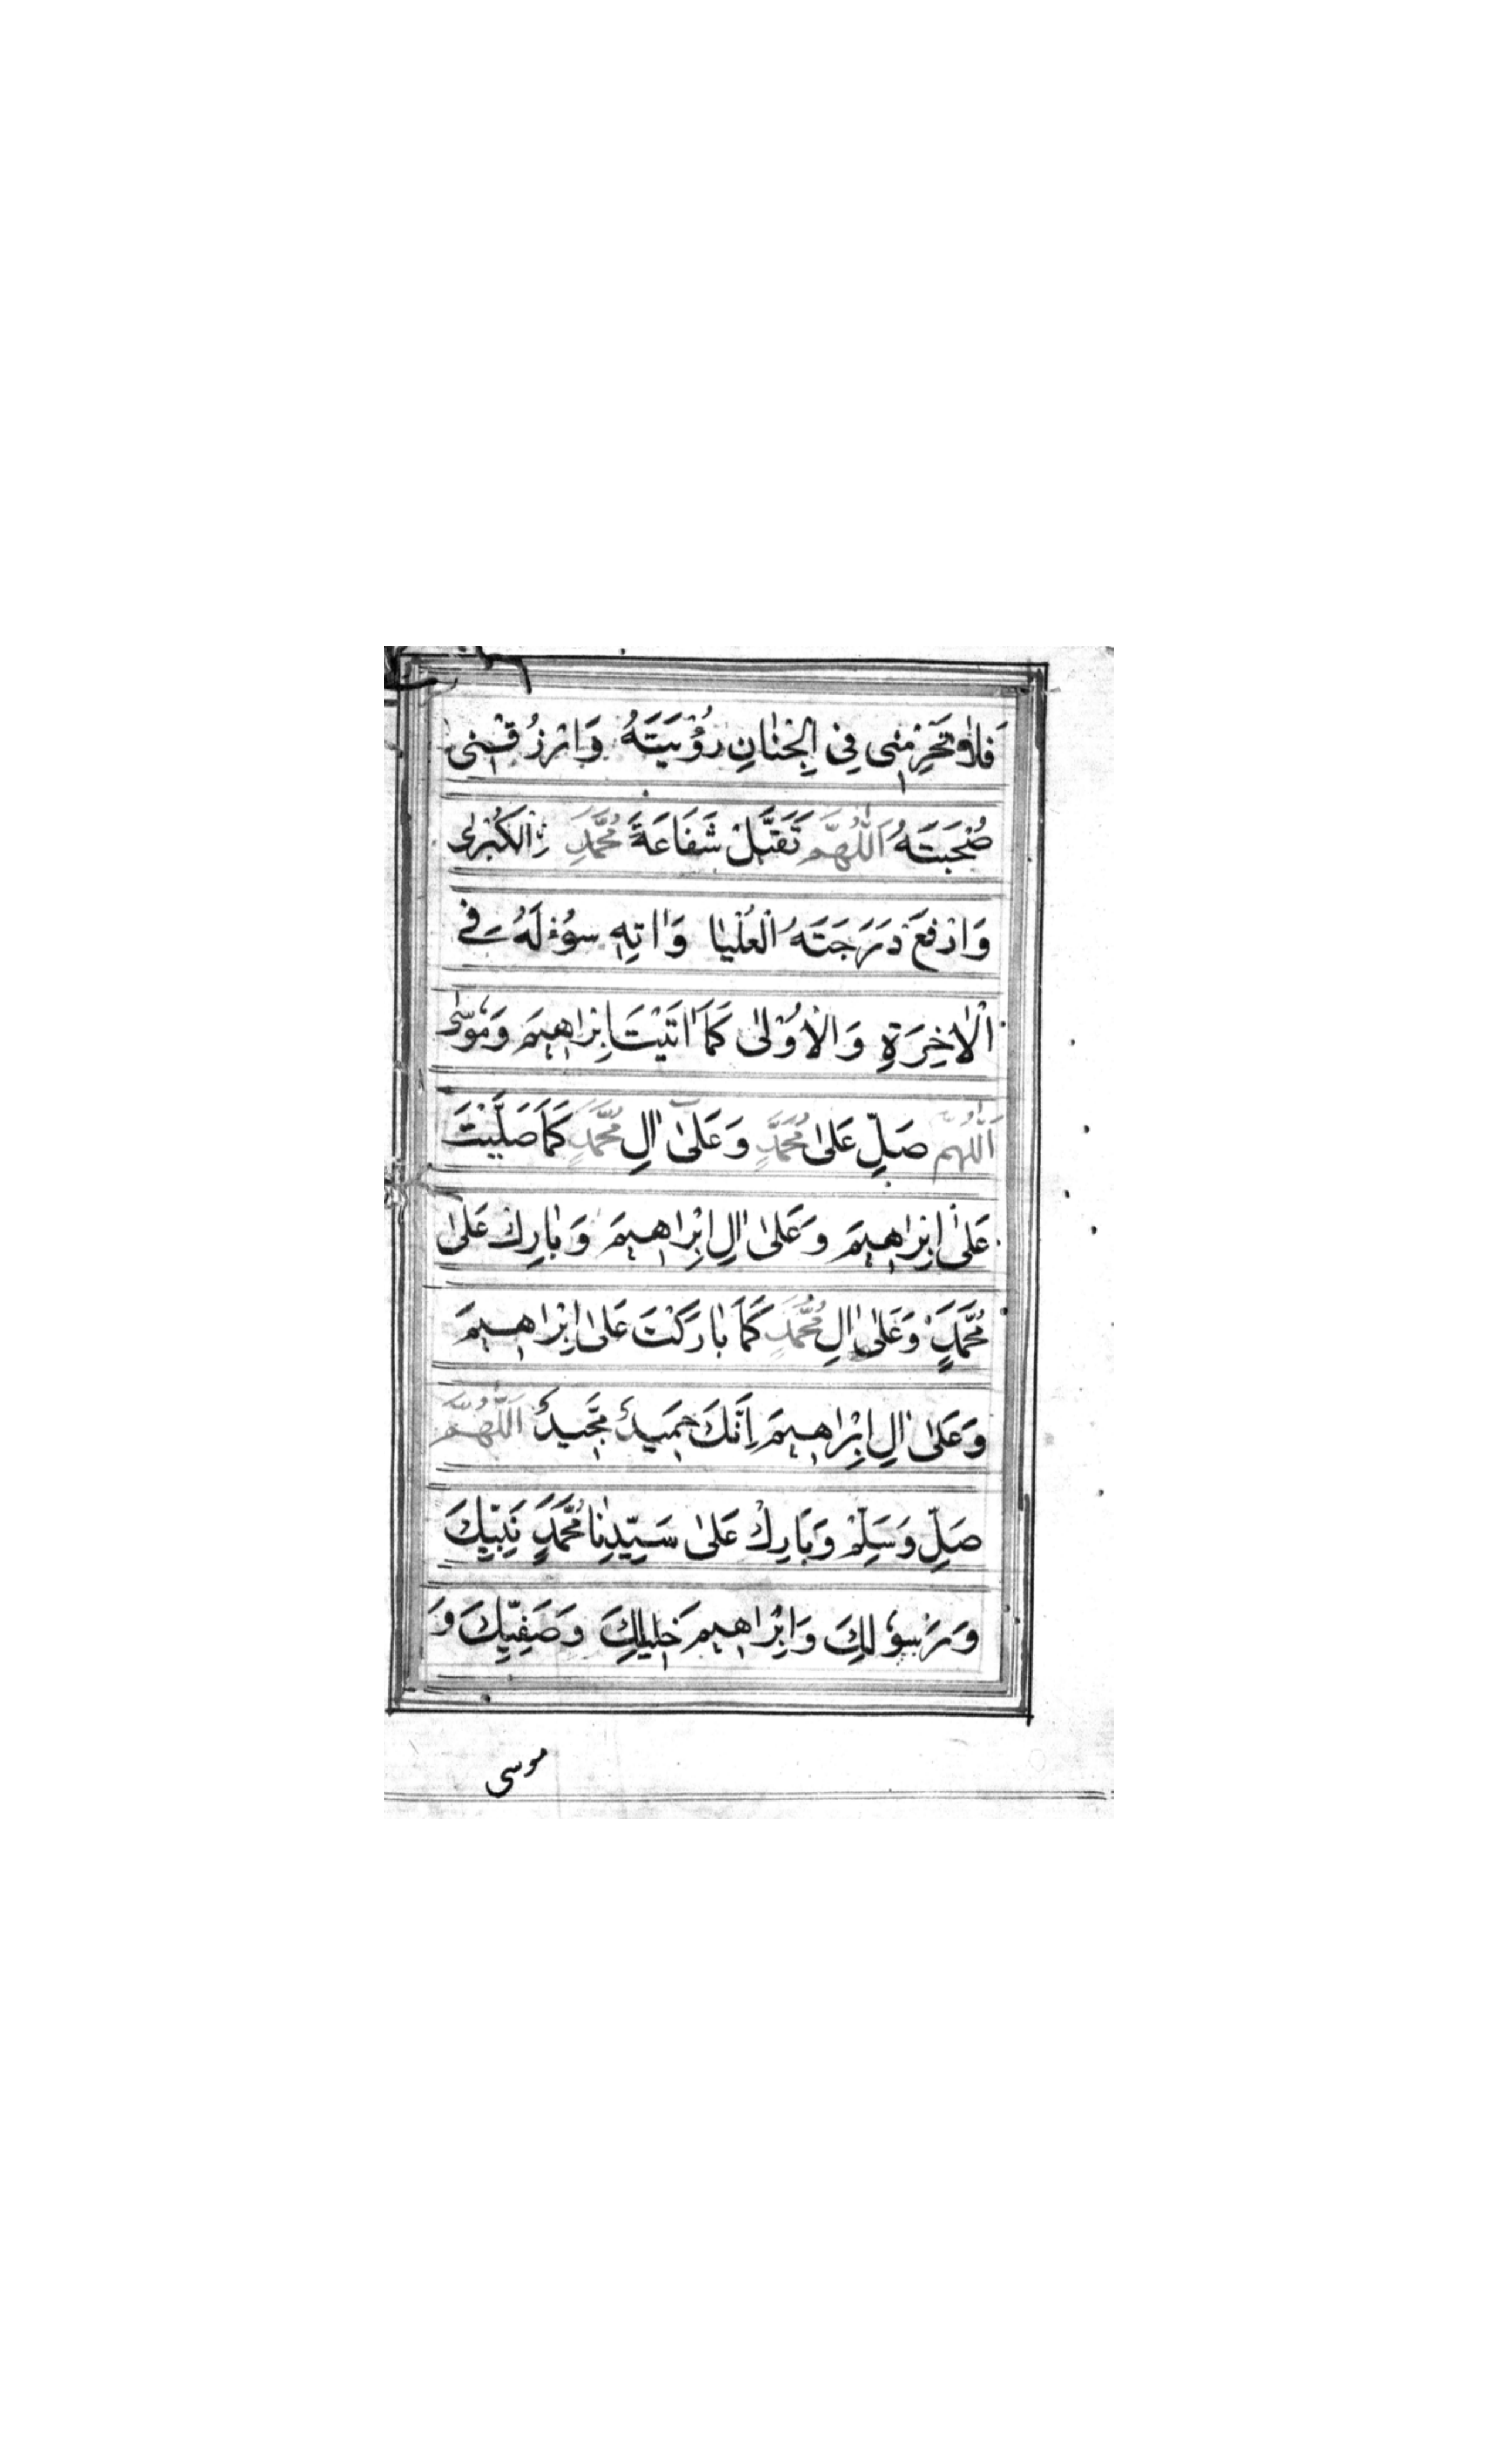 فَلَا تَحْرِمْنِي فِي الْجِنَانِ رُؤْيَتَهُ وَارْزُقْنِي
صُحْبَتَهُ اَللّٰهُمَّ تَقَبَّلْ شَفَاعَةَ مُحَمَّدٍ نِ الْكُبْرٰى
وَارْفَعْ دَرَجَتَهُ الْعُلْيَا وَاٰتِهِ سُؤْلَهُ فِي
الْاٰخِرَةِ وَالْاُوْلٰى كَمَا اٰتَيْتَ اِبْرَاهِيمَ وَمُوسٰى
اَللّٰهُمَّ صَلِّ عَلٰى مُحَمَّدٍ وَعَلٰى اٰلِ مُحَمَّدٍ كَمَا صَلَّيْتَ
عَلٰى اِبْرَاهِيمَ وَعَلٰى اٰلِ اِبْرَاهِيمَ وَبَارِكْ عَلٰى
مُحَمَّدٍ وَعَلٰى اٰلِ مُحَمَّدٍ كَمَا بَارَكْتَ عَلٰى اِبْرَاهِيمَ
وَعَلٰى اٰلِ اِبْرَاهِيمَ اِنَّكَ حَمِيدٌ مَجِيدٌ اَللّٰهُمَّ
صَلِّ وَسَلِّمْ وَبَارِكْ عَلٰى سَيِّدِنَا مُحَمَّدٍ نَبِيِّكَ
وَرَسُولِكَ وَاِبْرَاهِيمَ خَلِيلِكَ وَصَفِيِّكَ وَ
موسى